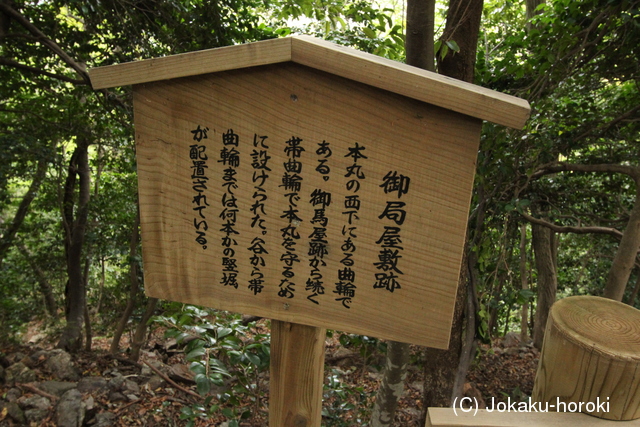 御局屋敷跡
本丸の西下にある曲輪で
ある。御馬屋跡から続く
帯曲輪で本丸を守るため
に設けられた。谷から帯
曲輪までは何本かの竪堀
が配置されている。
(C) Jokaku-horoki